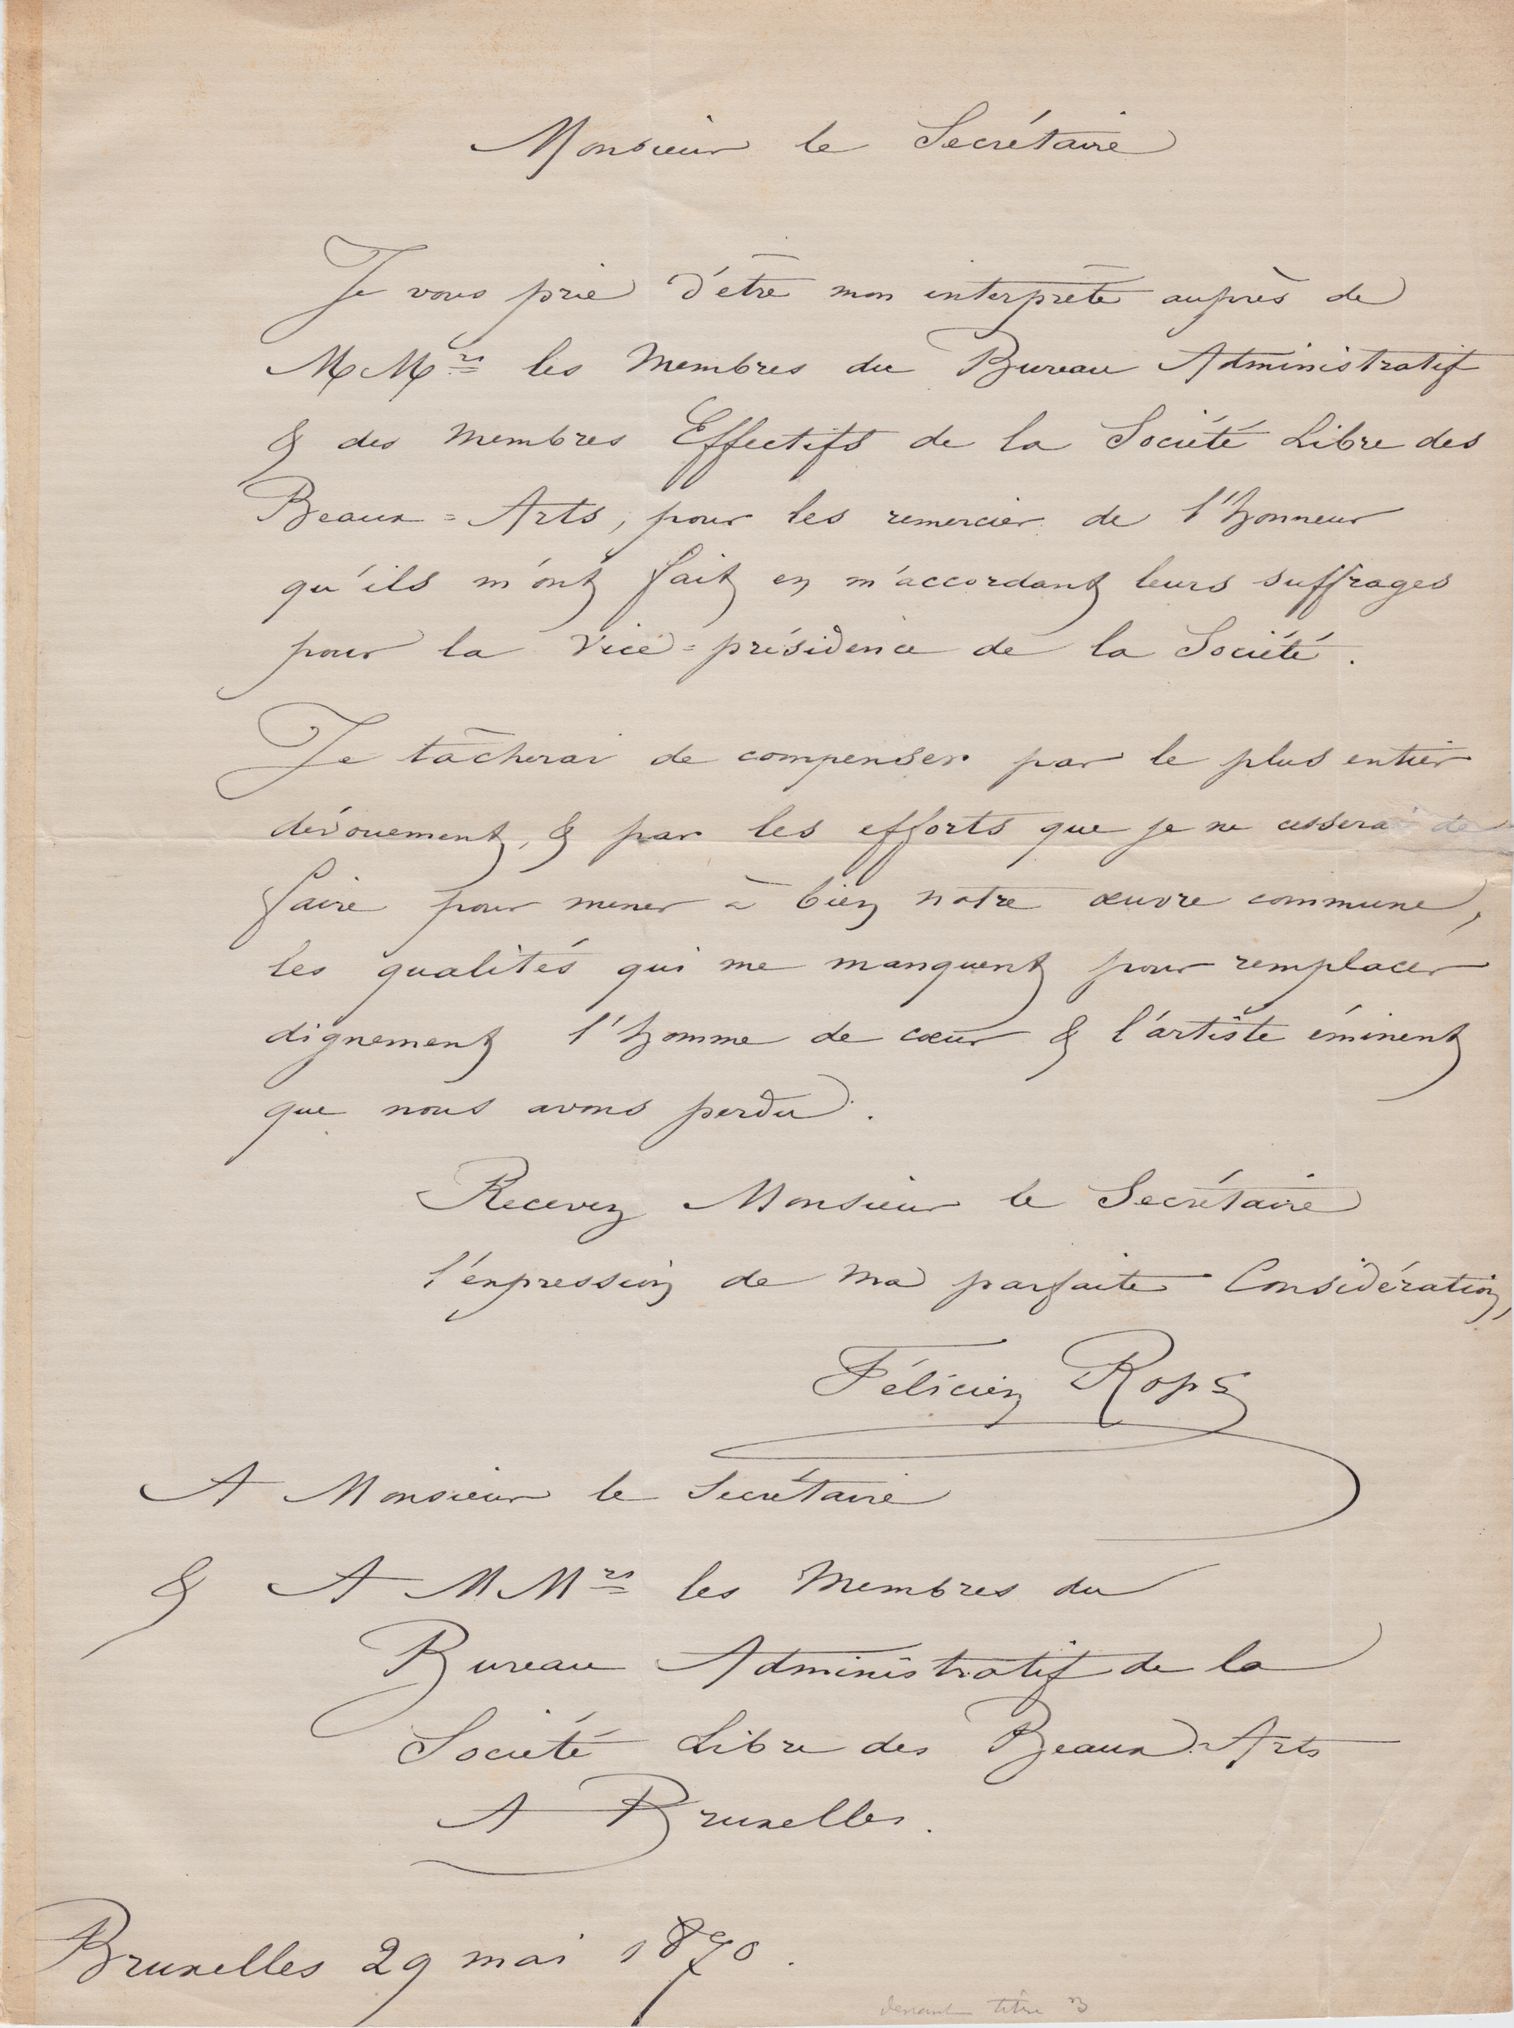 Monsieur le Secrétaire
Je vous prie d'être mon interprète auprès de
MMrs les Membres du Bureau Administratif
& des Membres Effectifs de la Société Libre des
Beaux=Arts, pour les remercier de l'honneur
qu'ils m'ont fait en m'accordant leurs suffrages
pour la vice=présidence de la Société.
Je tâcherai de compenser par le plus entier
dévouement, & par les efforts que je ne cesserai de
faire pour mener à bien notre œuvre commune,
les qualités qui me manquent pour remplacer
dignement l'homme de cœur & l'artiste éminent
que nous avons perdu.
Recevez Monsieur le Secrétaire
l'expression de ma parfaite Considération,
Félicien Rops
A Monsieur le Secrétaire
& A MMrs les Membres du
Bureau Administratif de la
Société Libre des Beaux=Arts
A Bruxelles.
Bruxelles 29 mai 1870.
titre